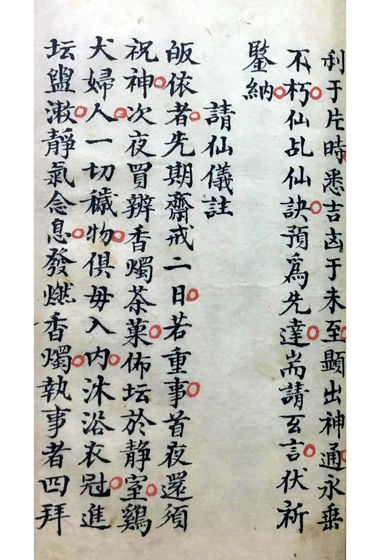 利于片時悉吉凶于未至顯出神通永垂
不朽仙乩仙訣預爲先達耑請玄言伏祈
鍳納
請仙儀註
皈依者先期齋戒二日若重事首夜還須
祝神次夜買辦香燭茶菓佈坛於靜室鷄
犬婦人一切穢物俱毋入内沐浴衣冠進
坛盥漱靜氣念息發燃香燭執事者四拜